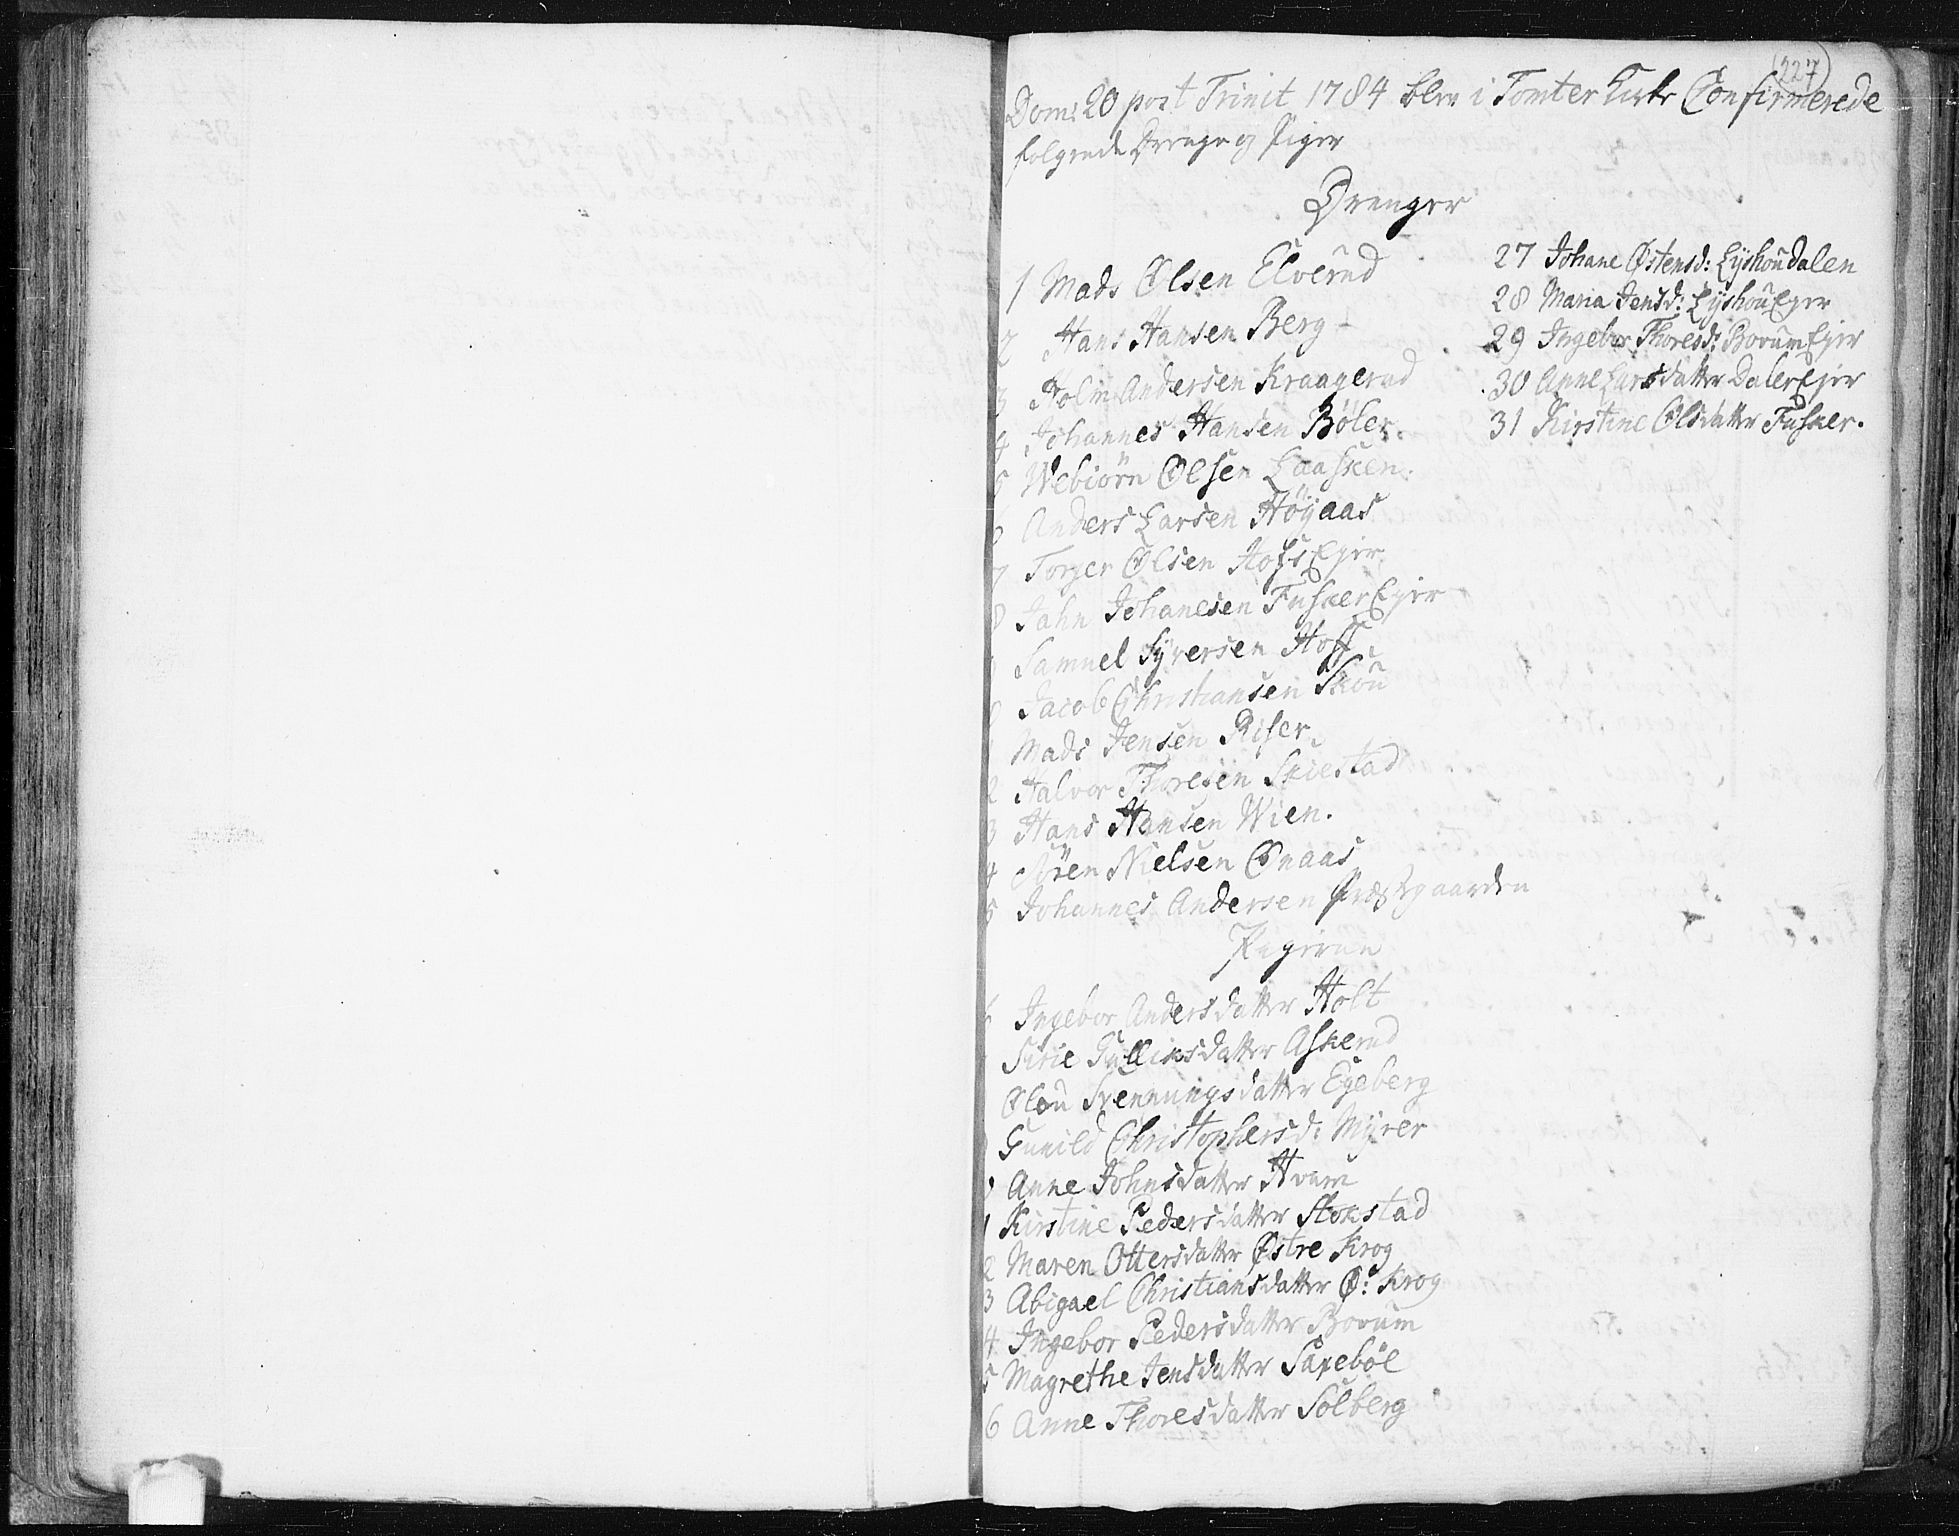 227
Dom: 20 post Trinit 1784 blev i Tomter Kirke Confirmerede
følgende Drenge og Piger
Drenger
1 Mads Olsen Elverud
2 Hans Hansen Berg
3 Holm Andersen Kraagerud
4 Johannes Hansen Bøler.
5 Webiörn Olsen Laasken.
6 Anders Larsen Höÿaas
7 Torger Olsen HofsEjer
8 Jahn Johanesen FuskerEjer
Samuel Syversen Hoff
Jacob Christiansen Skou
Mads Jensen Riser
2 Halvor Thoresen Skiestad
3 Hans Hansen Wien.
4 Sören Nielsen Ønaas
5 Johannes Andersen Præstgaarden
Pigerne
6 Ingebor Andersdatter Holt
Sirie Gulliksdatter Askerud
Olou Svenningsdatter Egeberg
Gunild Christophersd: Myrer
Anne Johnsdatter Hvam
1 Kirstine Pedersdatter Stokstad
2 Maren Ottersdatter Østre Krog
3 Abigael Christiansdatter Ø: Krog
4 Ingebor Pedersdatter Bovum
5 Magrethe Jensdatter Saxebøl
6 Anne Thoresdatter Solberg
27 Johane Østensd: Lyshoudalen
28 Maria Jensd: LyshouEjer
29 Ingebor Thoresd: BovumEjer
30 Anne Larsdatter DalerEjer
31 Kirstine Olsdatter Fusker.